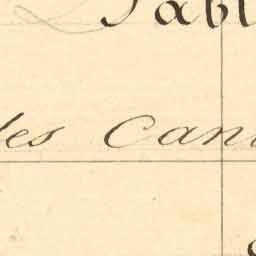 Tabl
des Can